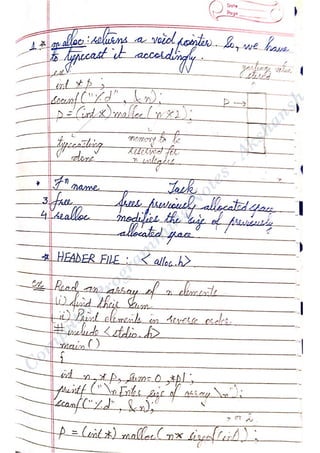 Date
Page
1 * malloc: returns a void pointer. So, we have
to typecast it accordingly.
garbage value
stored
int *p;
scanf("%d", &n);
P →
p = (int*) malloc(n×2);
typecasting
done
memory to be
reserved for
n integers
* Fn name Task
3. free frees previously allocated space
4. realloc modifies the size of previously
allocated space
* HEADER FILE: <alloc.h>
Read an array of n elements
(i) find their sum
(ii) Print elements in reverse order.
#include <stdio.h>
main()
{
int n, *p, sum=0, *p1;
printf("\n Enter size of array \n");
scanf("%d", &n);
p = (int*) malloc(n* sizeof(int));